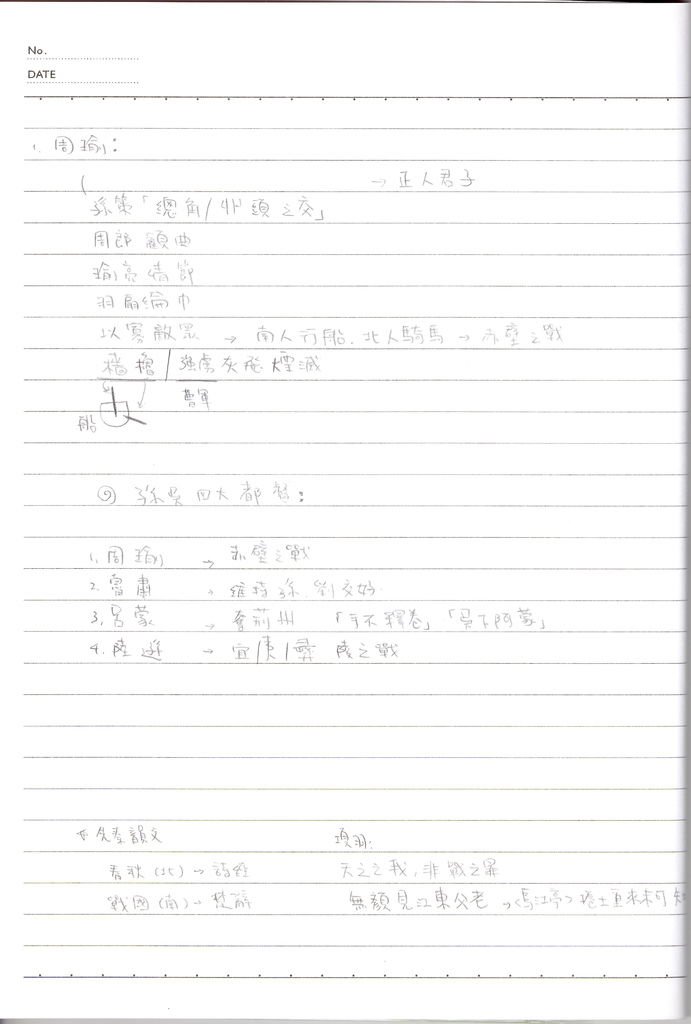 No.
DATE
1. 周瑜:
→ 正人君子
孫策「總角/丱頭之交」
周郎顧曲
瑜亮情節
羽扇綸巾
以寡敵眾 → 南人行船.北人騎馬 → 赤壁之戰
檣櫓/強虜灰飛煙滅
曹軍
船
② 孫吳四大都督:
1.周瑜 → 赤壁之戰
2.魯肅 → 維持孫.劉交好
3.呂蒙 奪荊州 「手不釋卷」「吳下阿蒙」
4.陸遜 → 宜/夷/彝 陵之戰
先秦韻文 項羽:
春秋(北) → 詩經 天之亡我,非戰之罪
戰國(南) → 楚辭 無顏見江東父老 → <烏江亭>捲土重來未可知